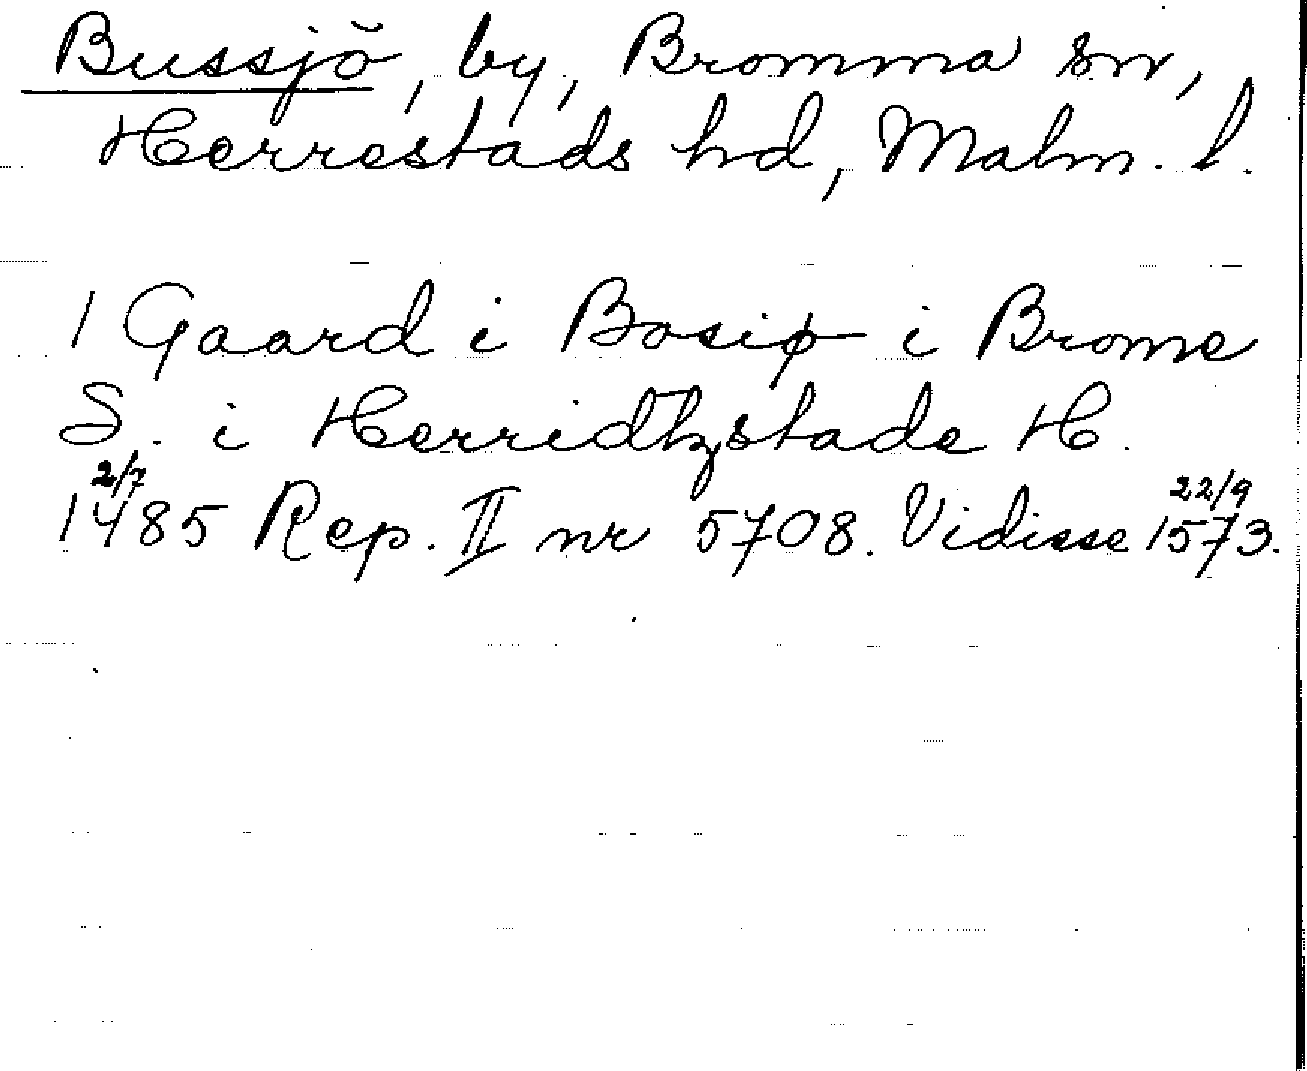 Bussjö, by, Bromma sn,
Herrestads hd, Malm. l.
1 Gaard i Bosiø i Brome
S. i Herridtzstade H.
2/7 22/9
1485 Rep. II nr 5708. Vidisse 1573.